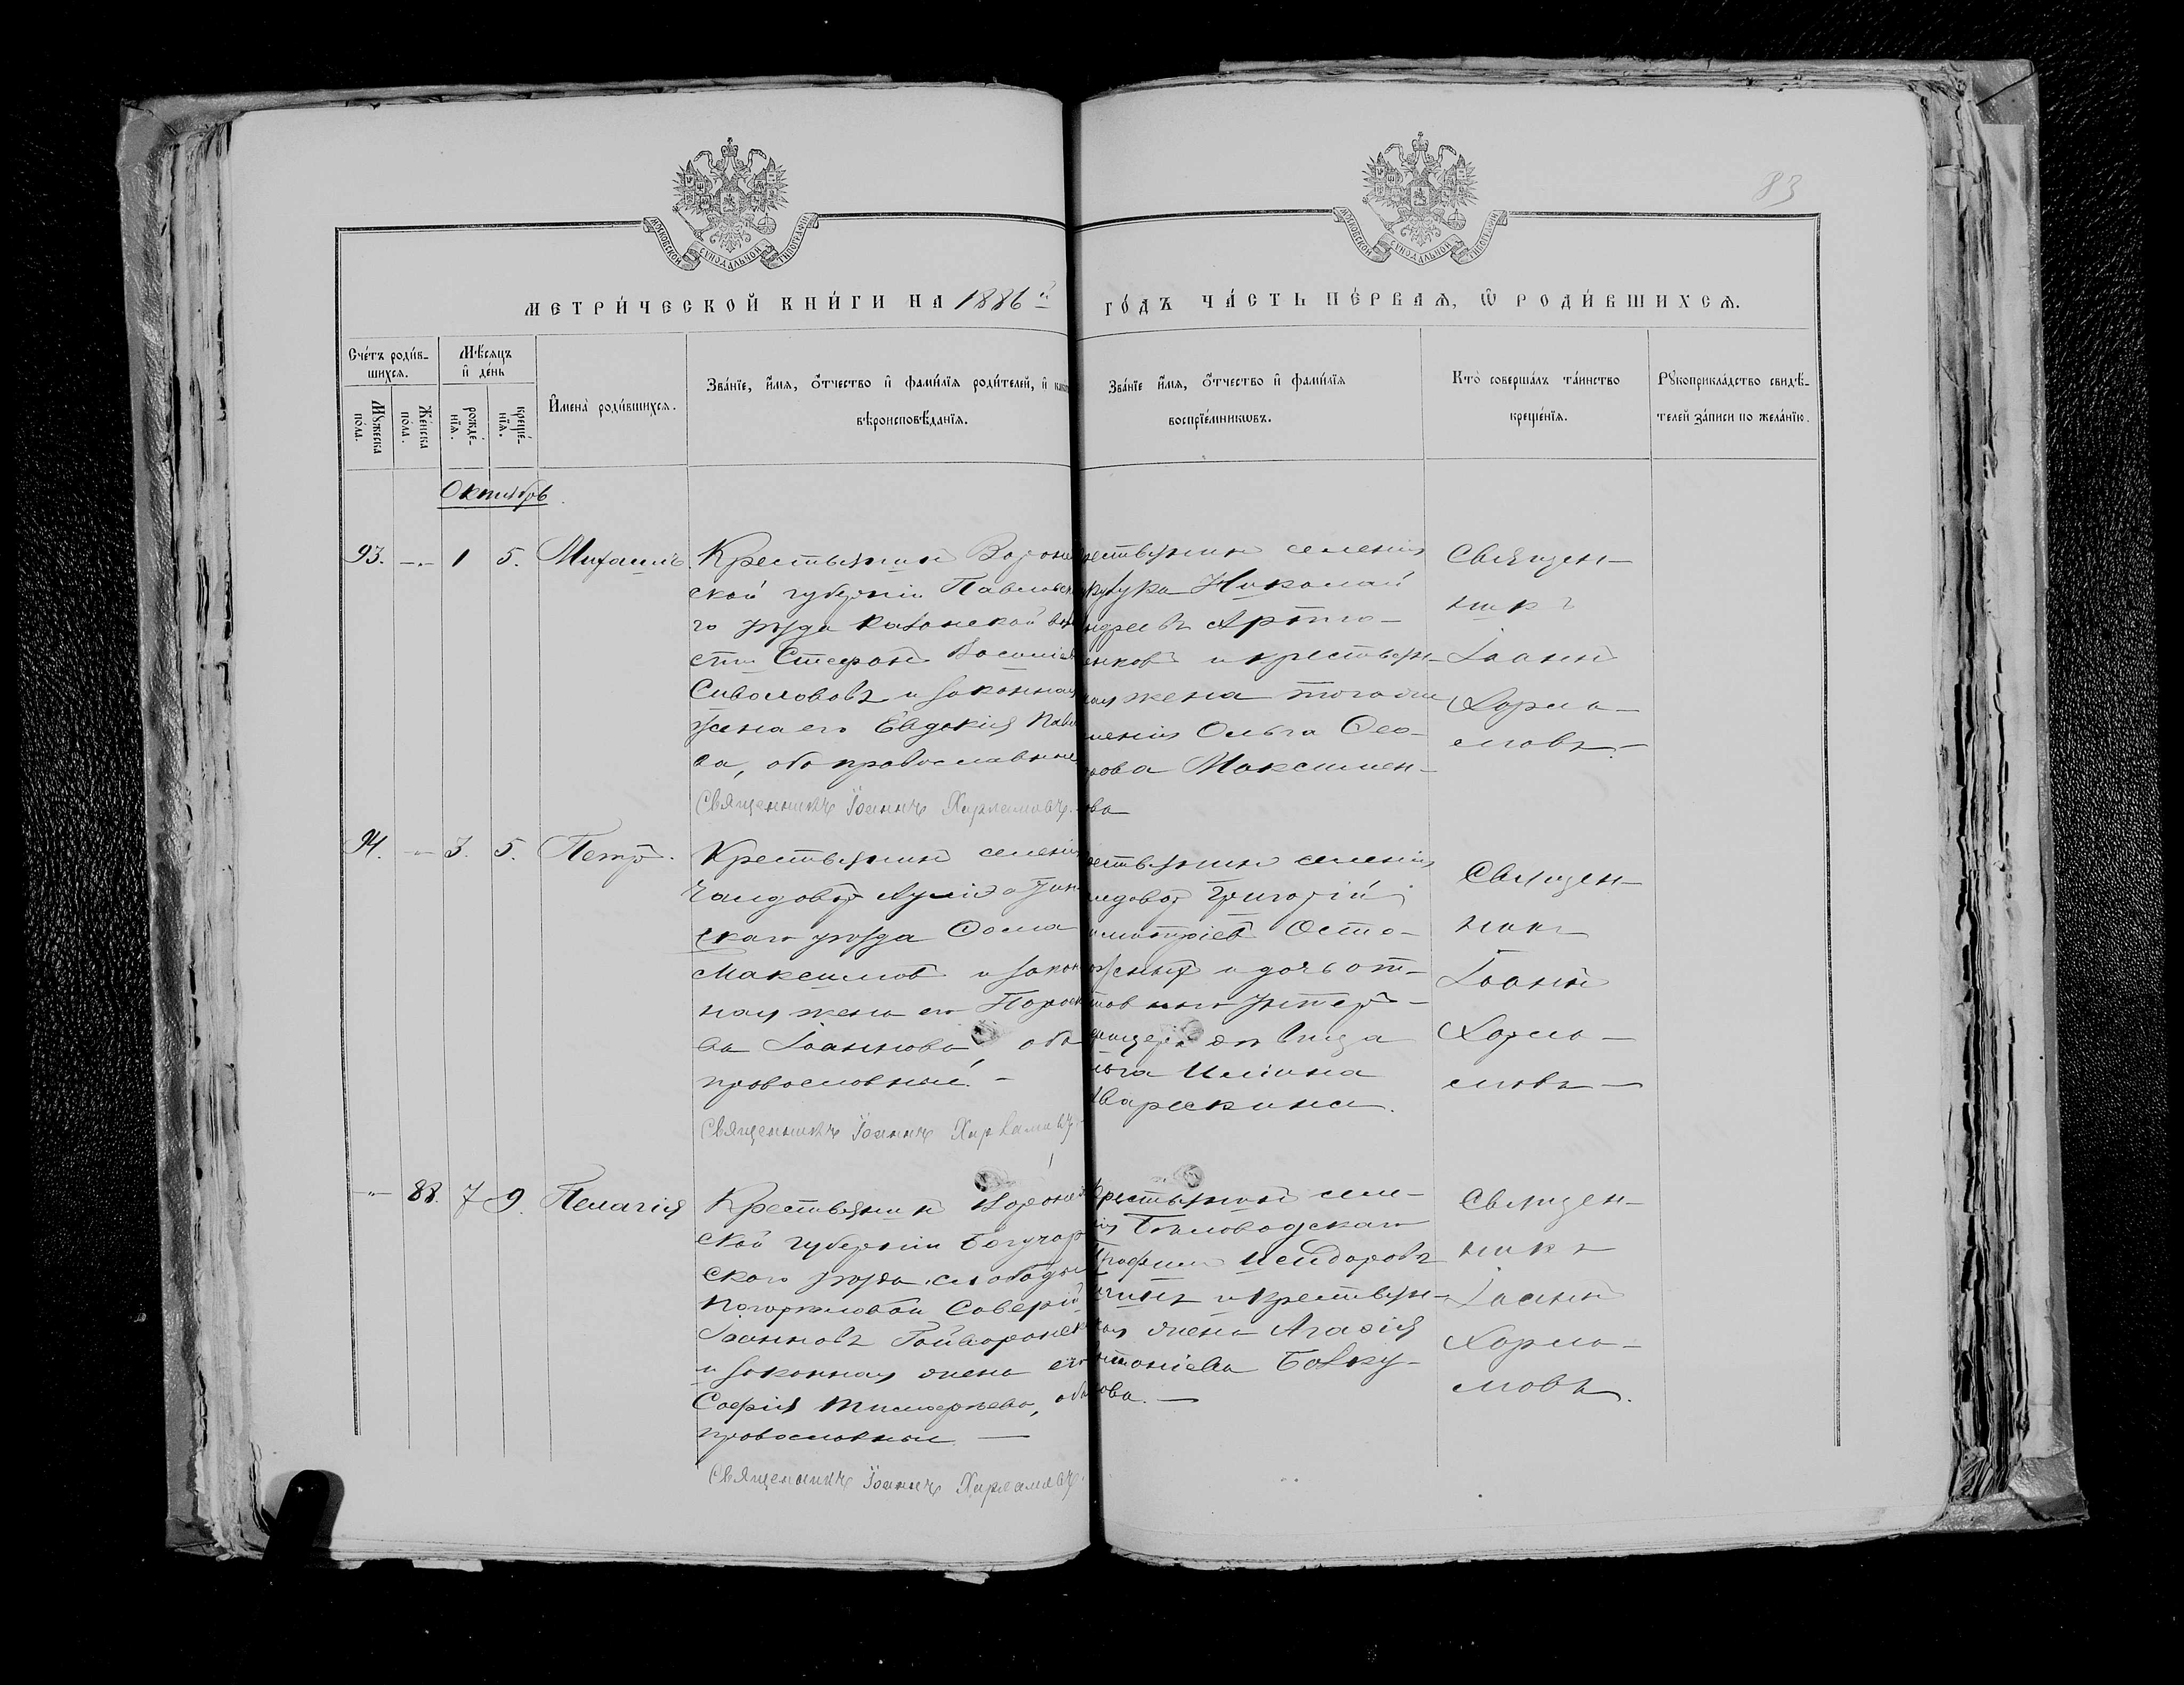 83
МОСКОВСКОЙ СѴНОДАЛЬНОЙ ТИПОГРАФІИ
МОСКОВСКОЙ СѴНОДАЛЬНОЙ ТИПОГРАФІИ
МЕТРИ́ЧЕСКОЙ КНИ́ГИ НА 1886 й
ГО́ДЪ ЧА́СТЬ ПЕ́РВАѦ, Ѡ РОДИ́ВШИХСѦ.
Сче́тъ роди́в-
шихся.
Мꙋ́жеска по́ла.
Же́нска по́ла.
Мѣ́сяцъ
и҆ де́нь
рожде́-
нїя.
креще́-
нїя.
И҆мена̀ роди́вшихся.
Зва́нїе, и҆́мя, ѻ҆́тчество и҆ фами́лїя роди́телей, и҆
вѣроисповѣ́данїя.
Зва́нїе и҆́мя, ѻ҆́тчество и҆ фами́лїя
воспрїе́мникѡвъ.
Кто̀ соверша́лъ та́инство
креще́нїя.
Рꙋкоприкла́дство свидѣ́-
телей за́писи по жела́нїю.
Октябрь
93. -„- 1 5. Михаилъ.
Крестьянинъ Вороне
ской губерніи Павловск
го уѣзда Казанской вол
сти Стефанъ Васильев
и законная
жена его Евдокія Павл
ва, оба православные
Священникъ Іоаннъ Харламовъ.
рестьянинъ селенія
Николай
ндреевъ Артю-
енковъ и крестьян-
кая жена того же
ленія Ольга Ѳео-
рова Максимен-
ова
Священ-
никъ
Іоаннъ
Харла-
мовъ.
94. -„- 3. 5. Петръ.
Крестьянинъ селенія
Чалдовар
скаго уѣзда Ѳома
Максимовъ и закон
ная жена его Параск
ва Іоаннова, оба
православные. -
Священникъ Іоаннъ Харламовъ.
рестьянинъ селенія
лдовар Григорій
имитріевъ Оста-
и дочь от-
тавного унтеръ-
фицера дѣвица
льга Иліина
Шварескина.
Священ-
никъ
Іоаннъ
Харла-
мовъ
-„- 88. 7 9. Пелагія
Крестьянинъ Вороне
ской губерніи Богучар
скаго уѣзда слободы
Погорѣловки Саверій
Іоанновъ Гайворонск
и законная жена его
Софія Тимоѳеева, оба
православные
Священникъ Іоаннъ Харламовъ.
Крестьянинъ селе-
ія Бѣловодскаго
Трофимъ Исидоровъ
и крестьян-
кая жена Агаѳія
нтоніева
ова.
Священ-
никъ
Іоаннъ
Харла-
мовъ.